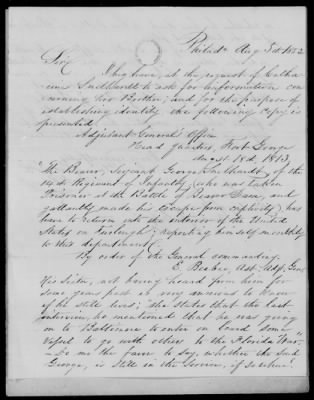 Philada Aug 8th 1852
Sir,
I beg leave, at the request of Catha-
rine Lindhardt to ask for information con-
cerning her Brother; and for the purpose of
establishing identity the following copy is
presented.
Adjutant General's Office
Head Quarters, Fort George
August 18th 1813,
"The Bearer, Sergeant George Lindhardt of the
14th Regiment of Infantry, who was taken
Prisoner at the Battle of Beaver Dam, and
gallantly made his escape from captivity, has
leave to return into the interior of the United
States on Furlough; reporting himself monthly
to this department.
By order of the General commanding.
E. Beebee, Asst. Adjt. Genl.
His Sister, not having heard from him for
some years past is very anxious to know
if he still lives; she states that the last
interview, he mentioned that he was going
on to Baltimore to enter on board some
Vessel to go with others to the Florida War,"
Do me the favor to say, whether the said
George, is still in the Service, if so where?